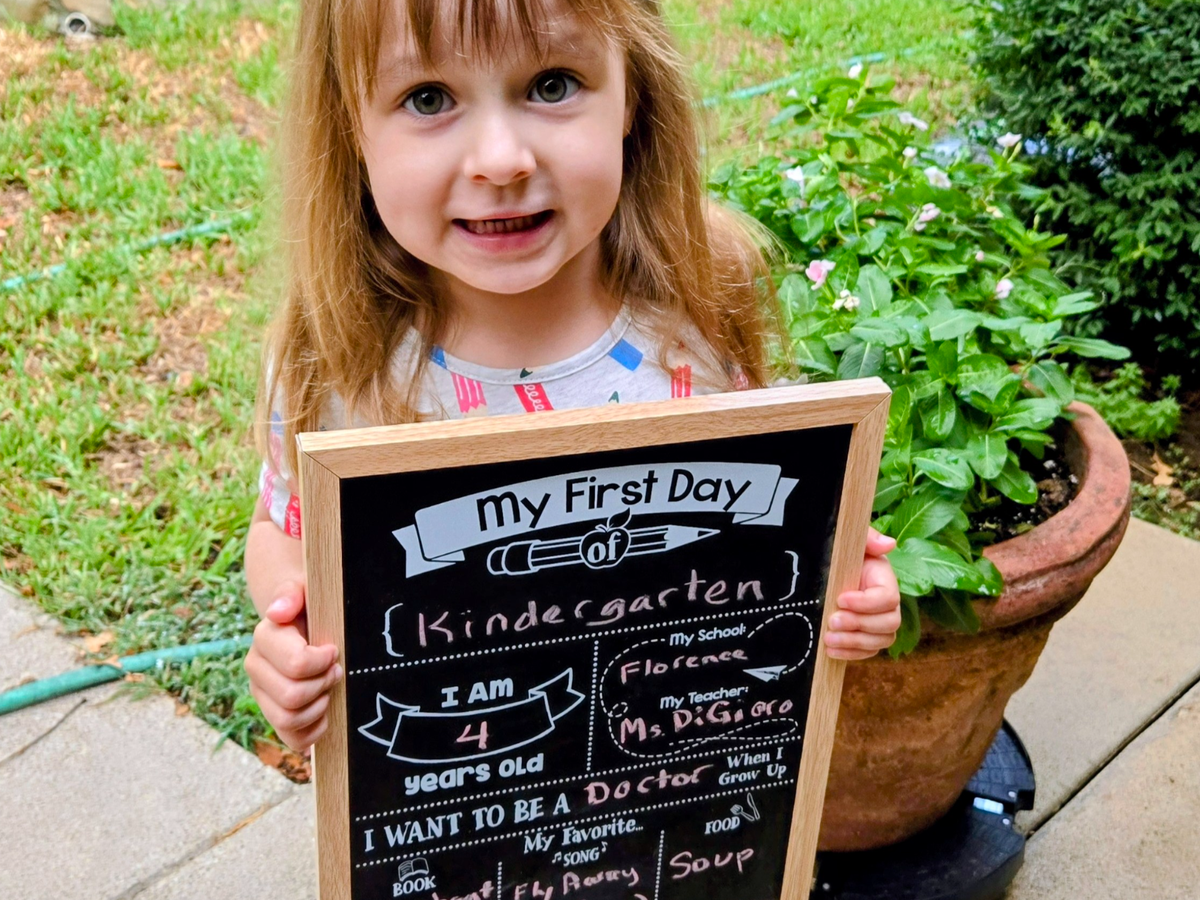 My First Day
of
{Kindergarten}
I AM
4
years old
My School:
Florence
My Teacher:
I WANT TO BE A Doctor When I Grow Up
My Favorite...
BOOK
SONG
Fly Away
FOOD
Soup